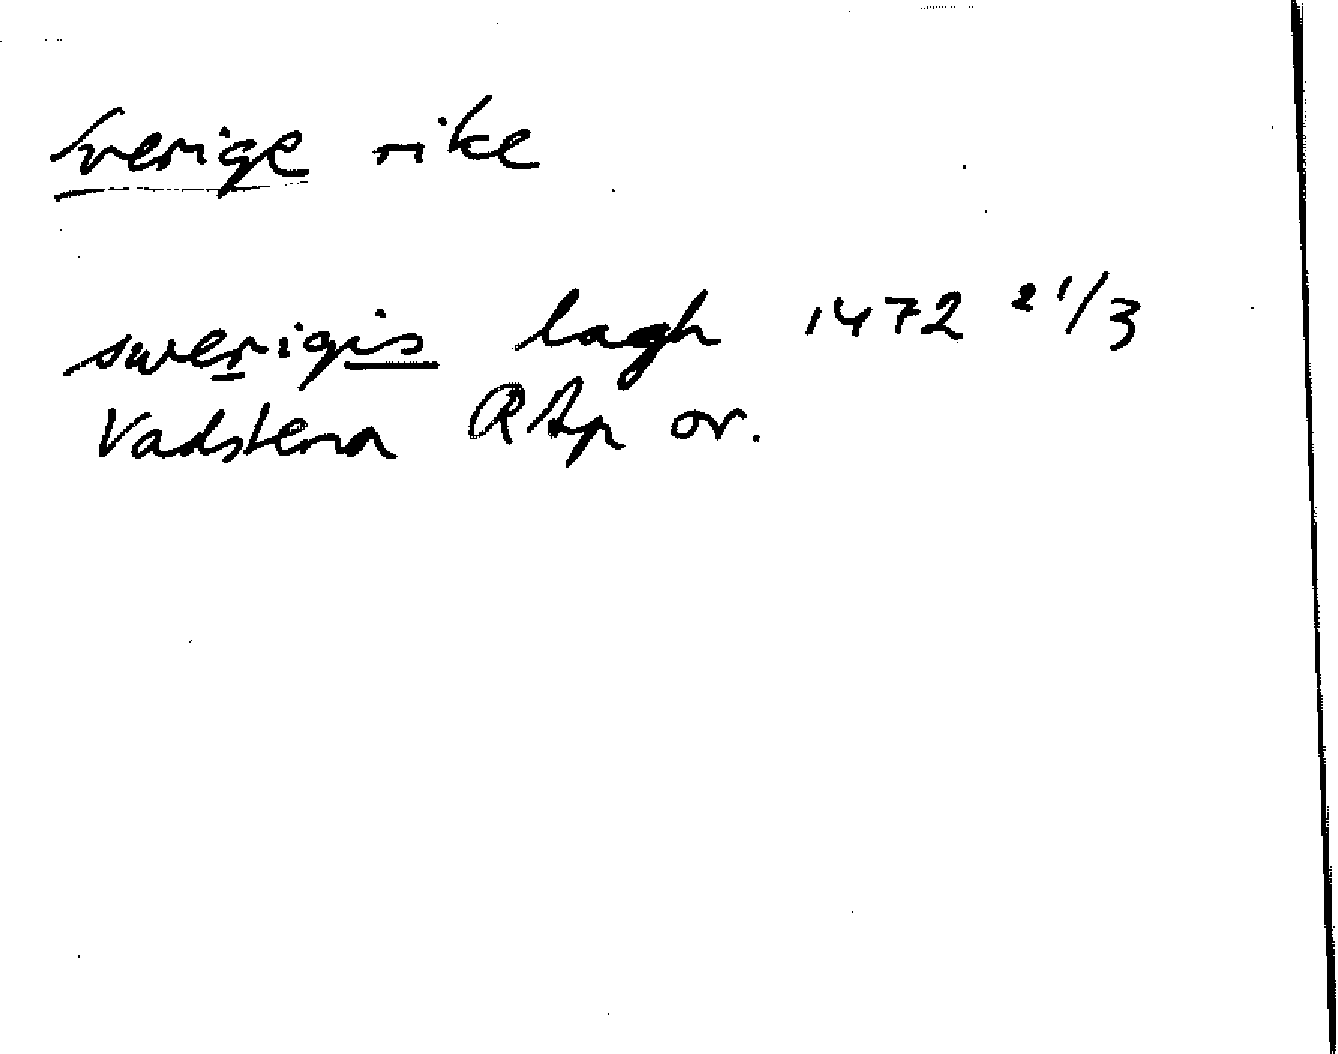 Sverige rike
swerigis lagh 1472 21/3
Vadstena RAp or.